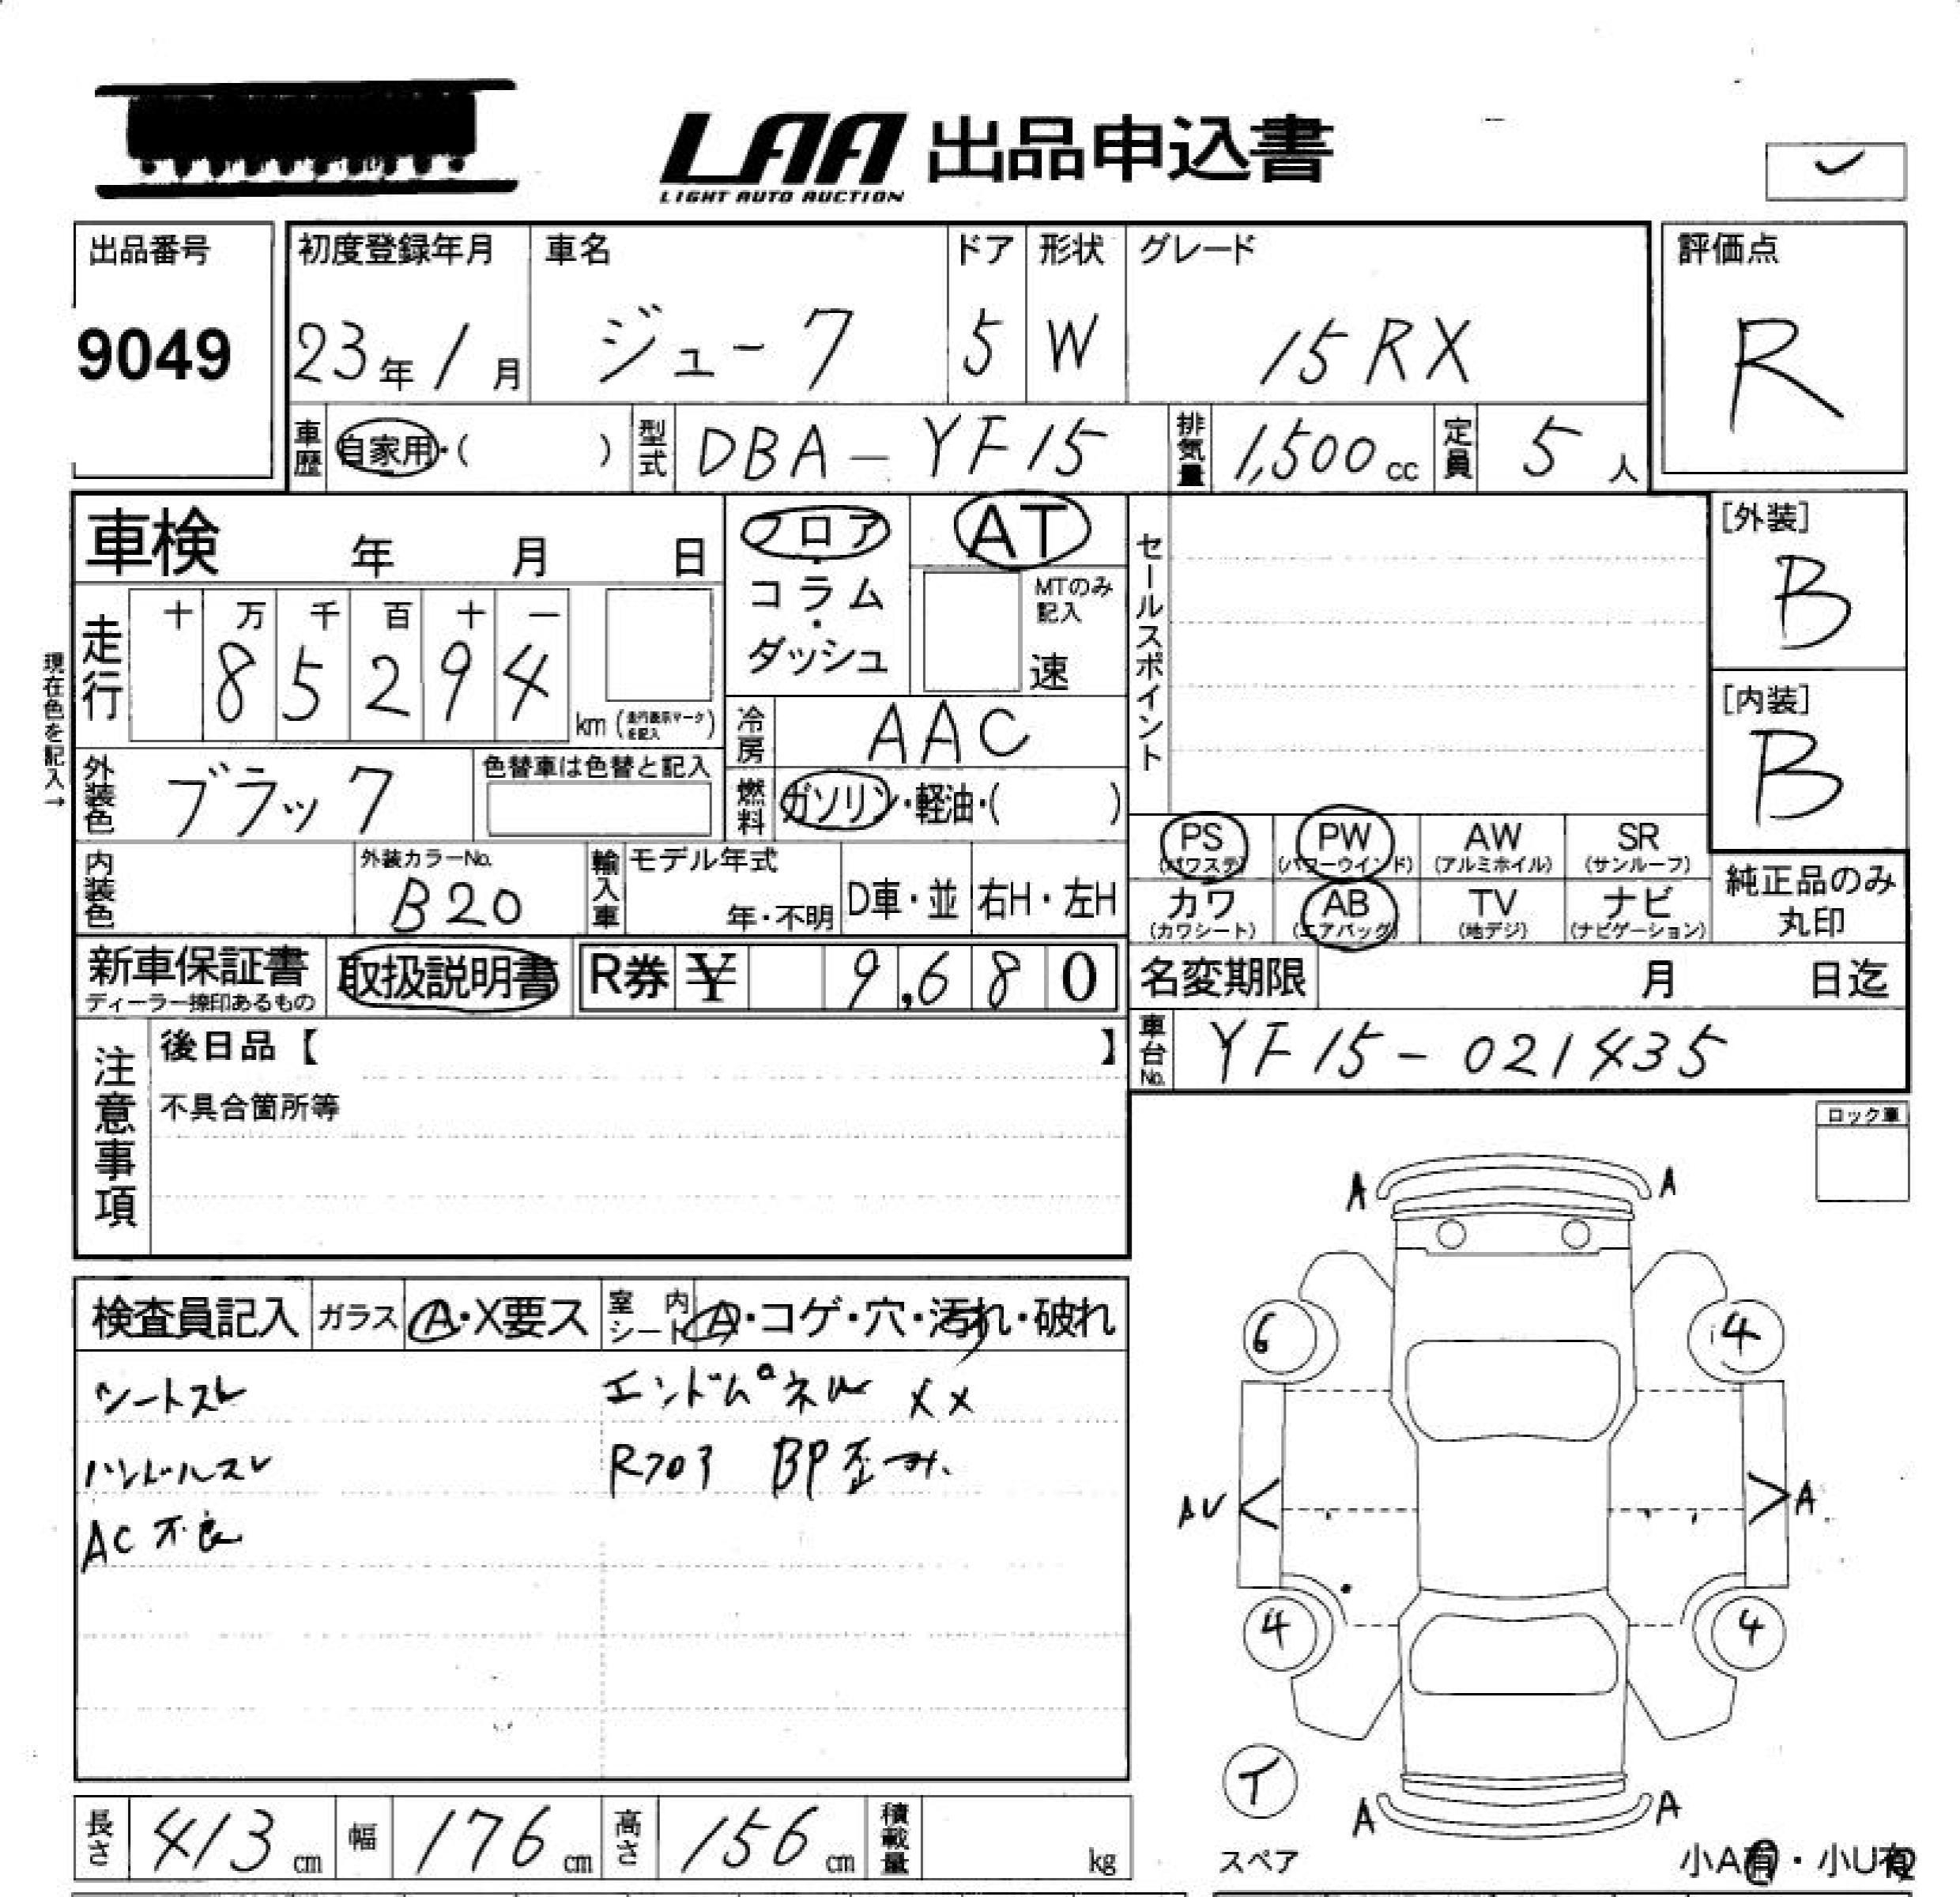 LAA 出品申込書
LIGHT AUTO AUCTION
出品番号
9049
初度登録年月
23年 1月
車名
ジューク
ドア
5
形状
W
グレード
15RX
評価点
R
車歴
自家用・( )
型式
DBA-YF15
排気量
1,500cc
定員
5人
車検 年 月 日
フロア・コラム・ダッシュ
AT
MTのみ記入
速
セールスポイント
[外装]
B
[内装]
B
現在色を記入→
走行
十 万 千 百 十 一
8 5 2 9 4
km (走行表示マークを記入)
冷房
AAC
外装色
ブラック
色替車は色替と記入
燃料
ガソリン・軽油・( )
PS (パワステ)
PW (パワーウインド)
AW (アルミホイル)
SR (サンルーフ)
カワ (カワシート)
AB (エアバッグ)
TV (地デジ)
ナビ (ナビゲーション)
純正品のみ丸印
内装色
外装カラーNo.
B20
輸入車
モデル年式
年・不明
D車・並
右H・左H
新車保証書
ディーラー捺印あるもの
取扱説明書
R券 ¥ 9,680
名変期限 月 日迄
車台No.
YF15-021435
注意事項
後日品【 】
不具合箇所等
ロック車
検査員記入
ガラス A・X要ス
室内シート A・コゲ・穴・汚れ・破れ
シートスレ
エンドパネル XX
ハンドルスレ
Rフロア BP歪み
AC不良
A A
6 4
AU A
4 4
T
スペア
A A
小A有・小U有
長さ 413cm
幅 176cm
高さ 156cm
積載量 kg